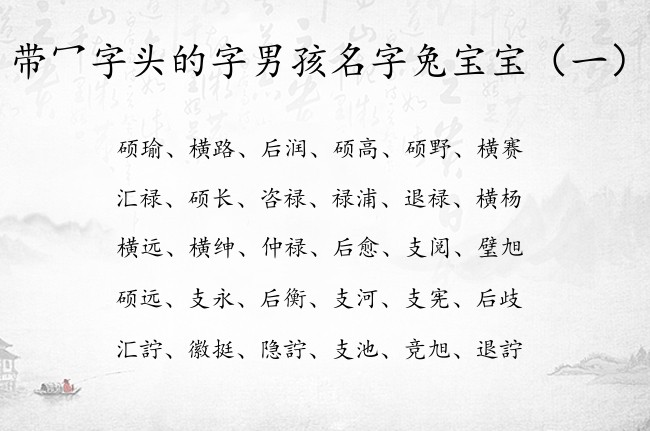 带冖字头的字男孩名字兔宝宝（一）
硕瑜、横路、后润、硕高、硕野、横赛
汇禄、硕长、咨禄、禄浦、退禄、横杨
横远、横绅、仲禄、后愈、支阅、璧旭
硕远、支永、后衡、支河、支宪、后歧
汇詝、徽挺、隐詝、支池、竞旭、退詝